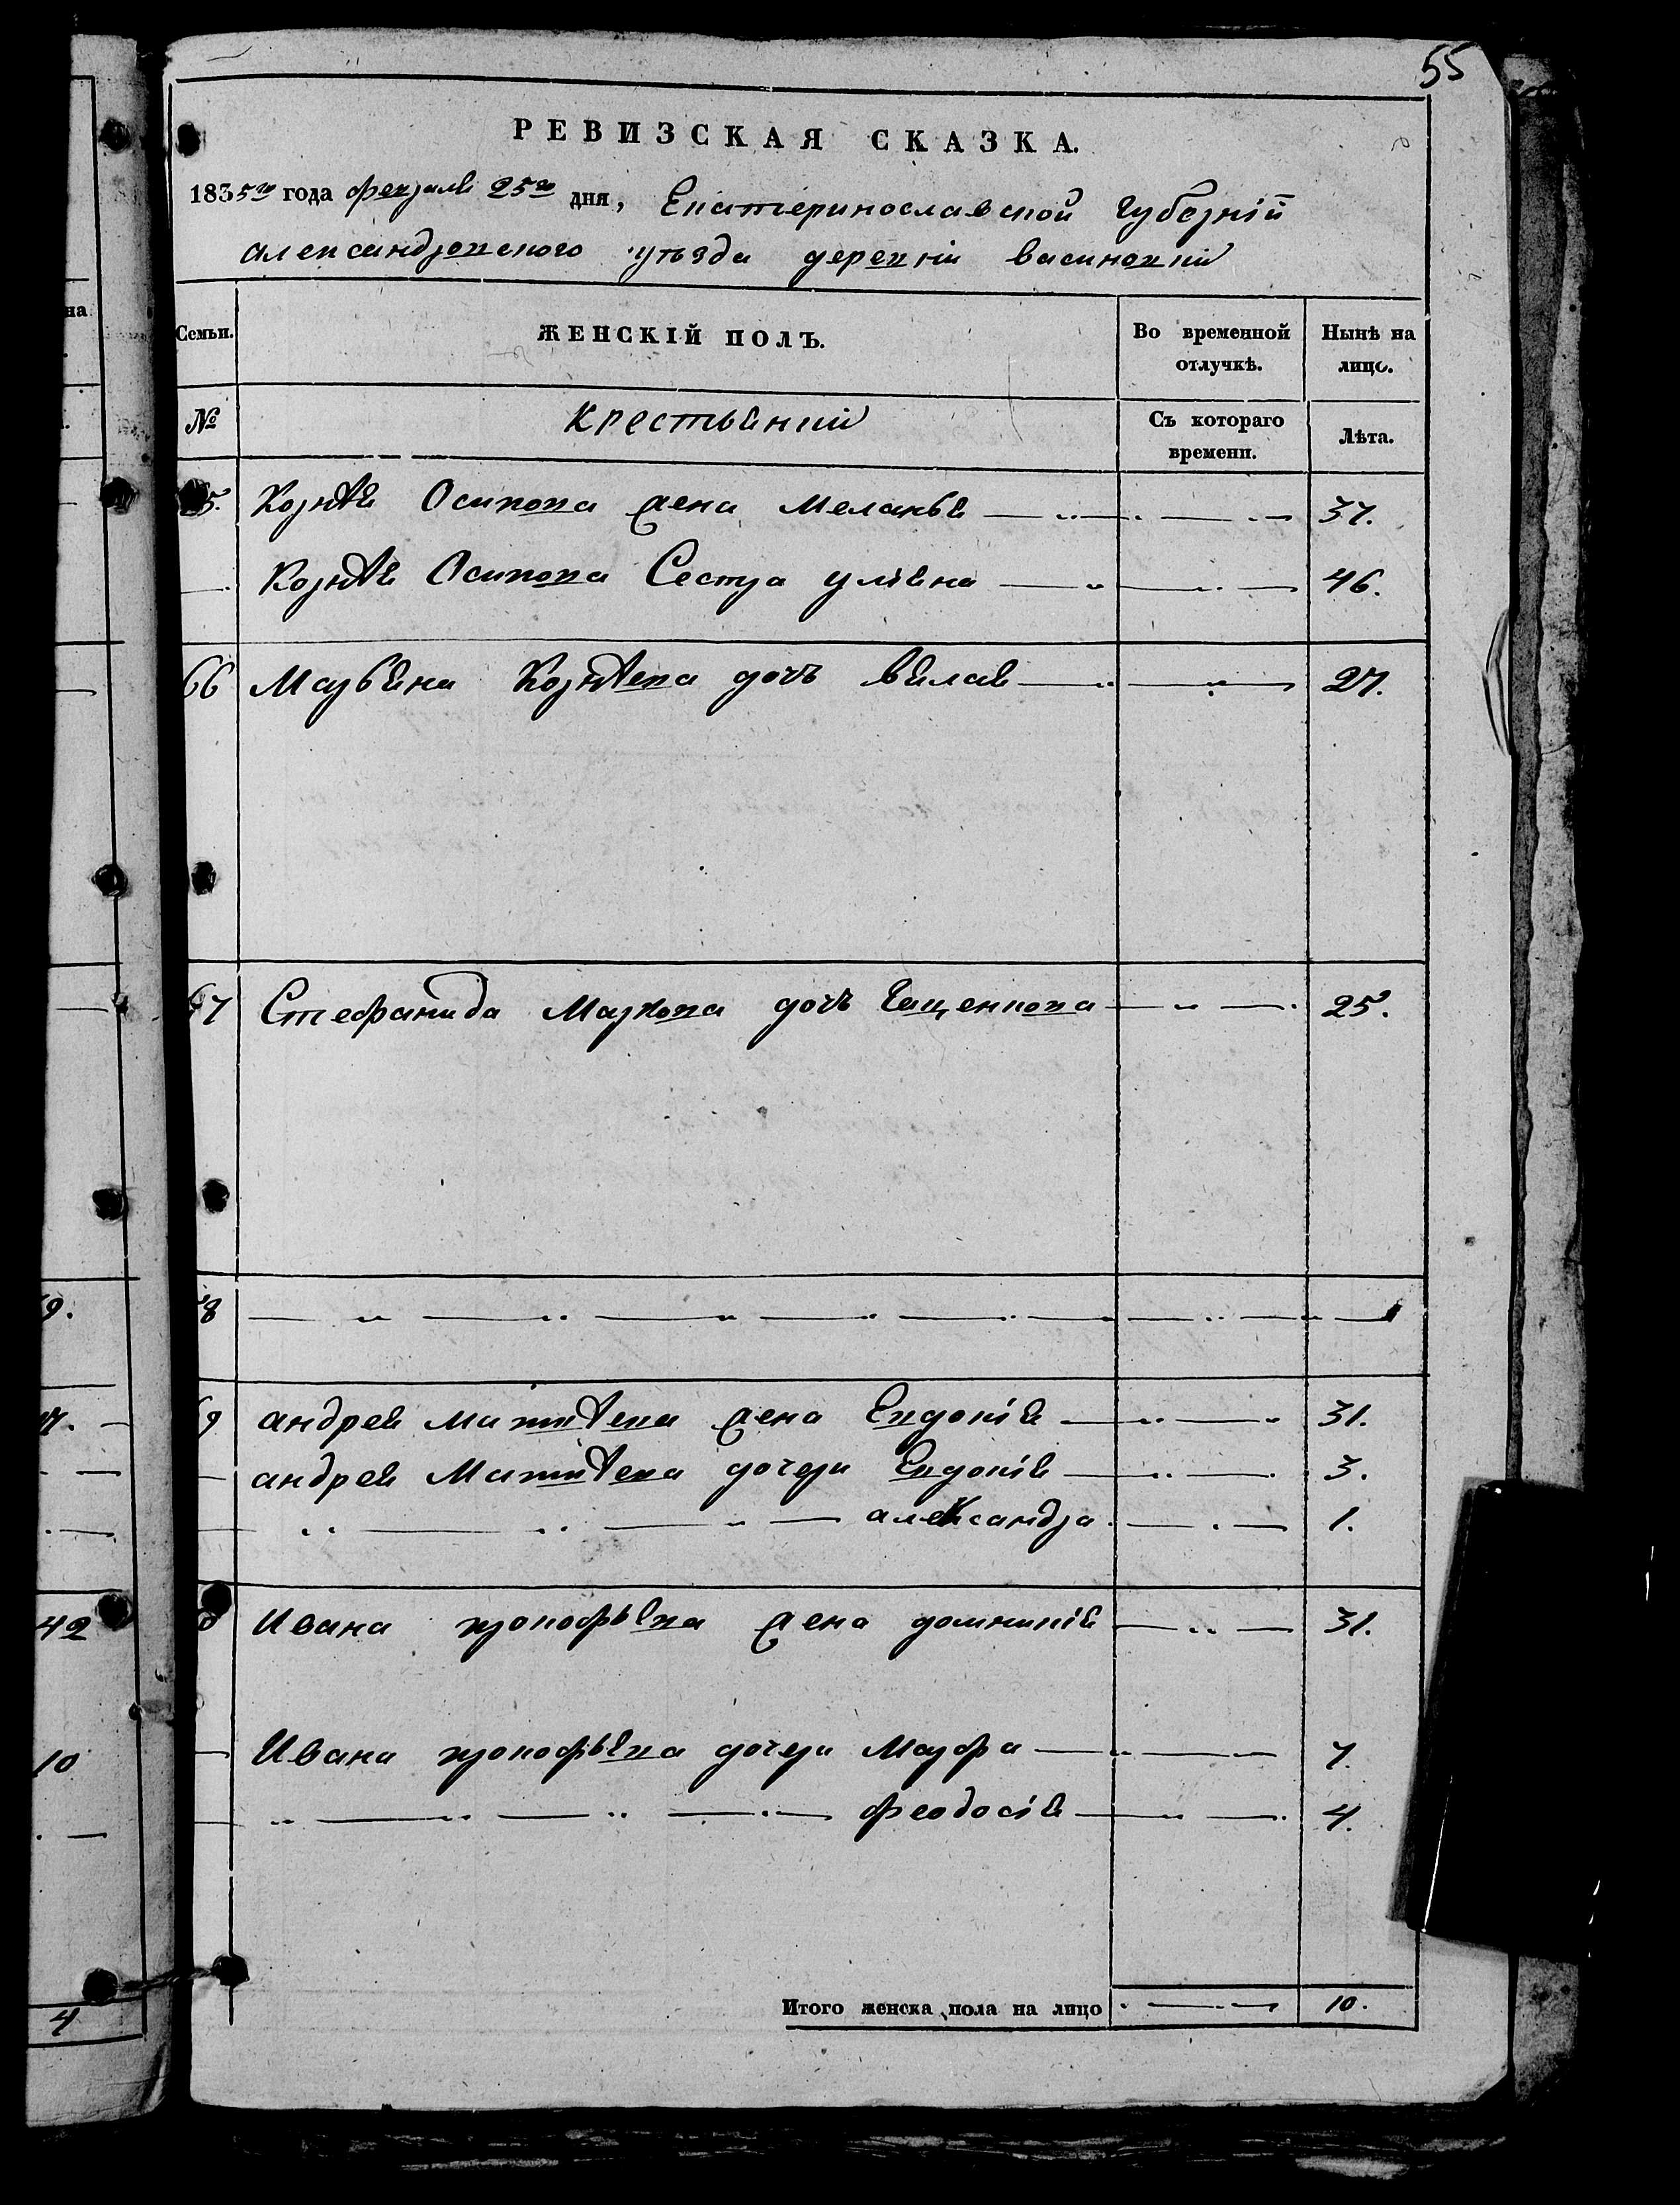 55
РЕВИЗСКАЯ СКАЗКА.
1835го года февраля 25го дня, Екатеринославской Губернiй
александровского уезда деревнiи васиновкий
Семьи. ЖЕНСКІЙ ПОЛЪ. Во временной отлучкѣ. Нынѣ на лицо.
№ Крестьяний Съ котораго времени. Лѣта.
65. Корнѣя Осипова жена Меланья 37.
Корнѣя Осипова Сестра улiяна 46.
66 Марьяна Корнѣева дочь 27.
67 Стефанида Маркова дочь 25.
68
69 андрея Матвѣева жена Евдокiя 31.
андрея Матвѣева дочери Евдокiя 3.
алеКсандра 1.
70 Ивана прокофьева жена домникiя 31.
Ивана прокофьева дочери Марфа 7.
феодосiя 4.
Итого женска пола на лицо 10.
на
9.
42
10
4